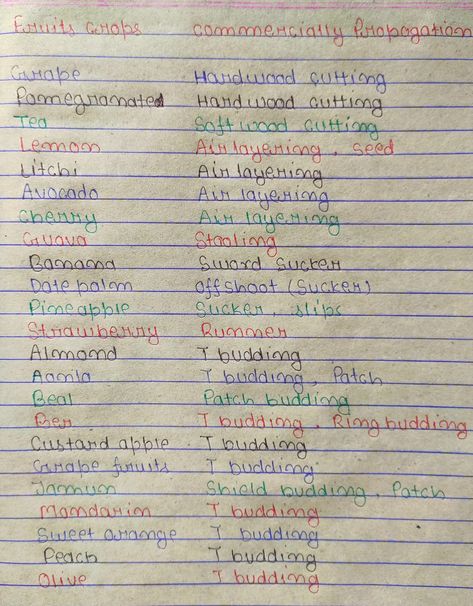 Fruits Crops Commercially Propagation
Grape Hardwood cutting
Pomegranated Hardwood cutting
Tea Softwood cutting
Lemon Air layering, seed
Litchi Air layering
Avocado Air layering
Cherry Air layering
Guava Stooling
Banana Sword Sucker
Date palam offshoot (Sucker)
Pineapple Sucker, slips
Strawiberry Runner
Almond T budding
Aonla T budding, Patch
Beal Patch budding
Ber T budding, Ring budding
Custard apple T budding
Grape fruits T budding
Jamun Shield budding, Patch
Mandarin T budding
Sweet orange T budding
Peach T budding
Olive T budding